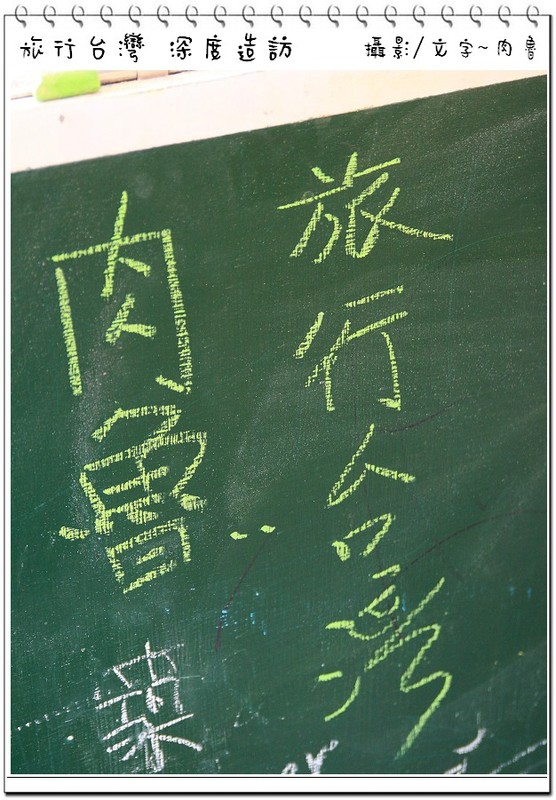 旅行台灣 深度造訪
攝影/文字~肉魯
旅行台灣
肉魯